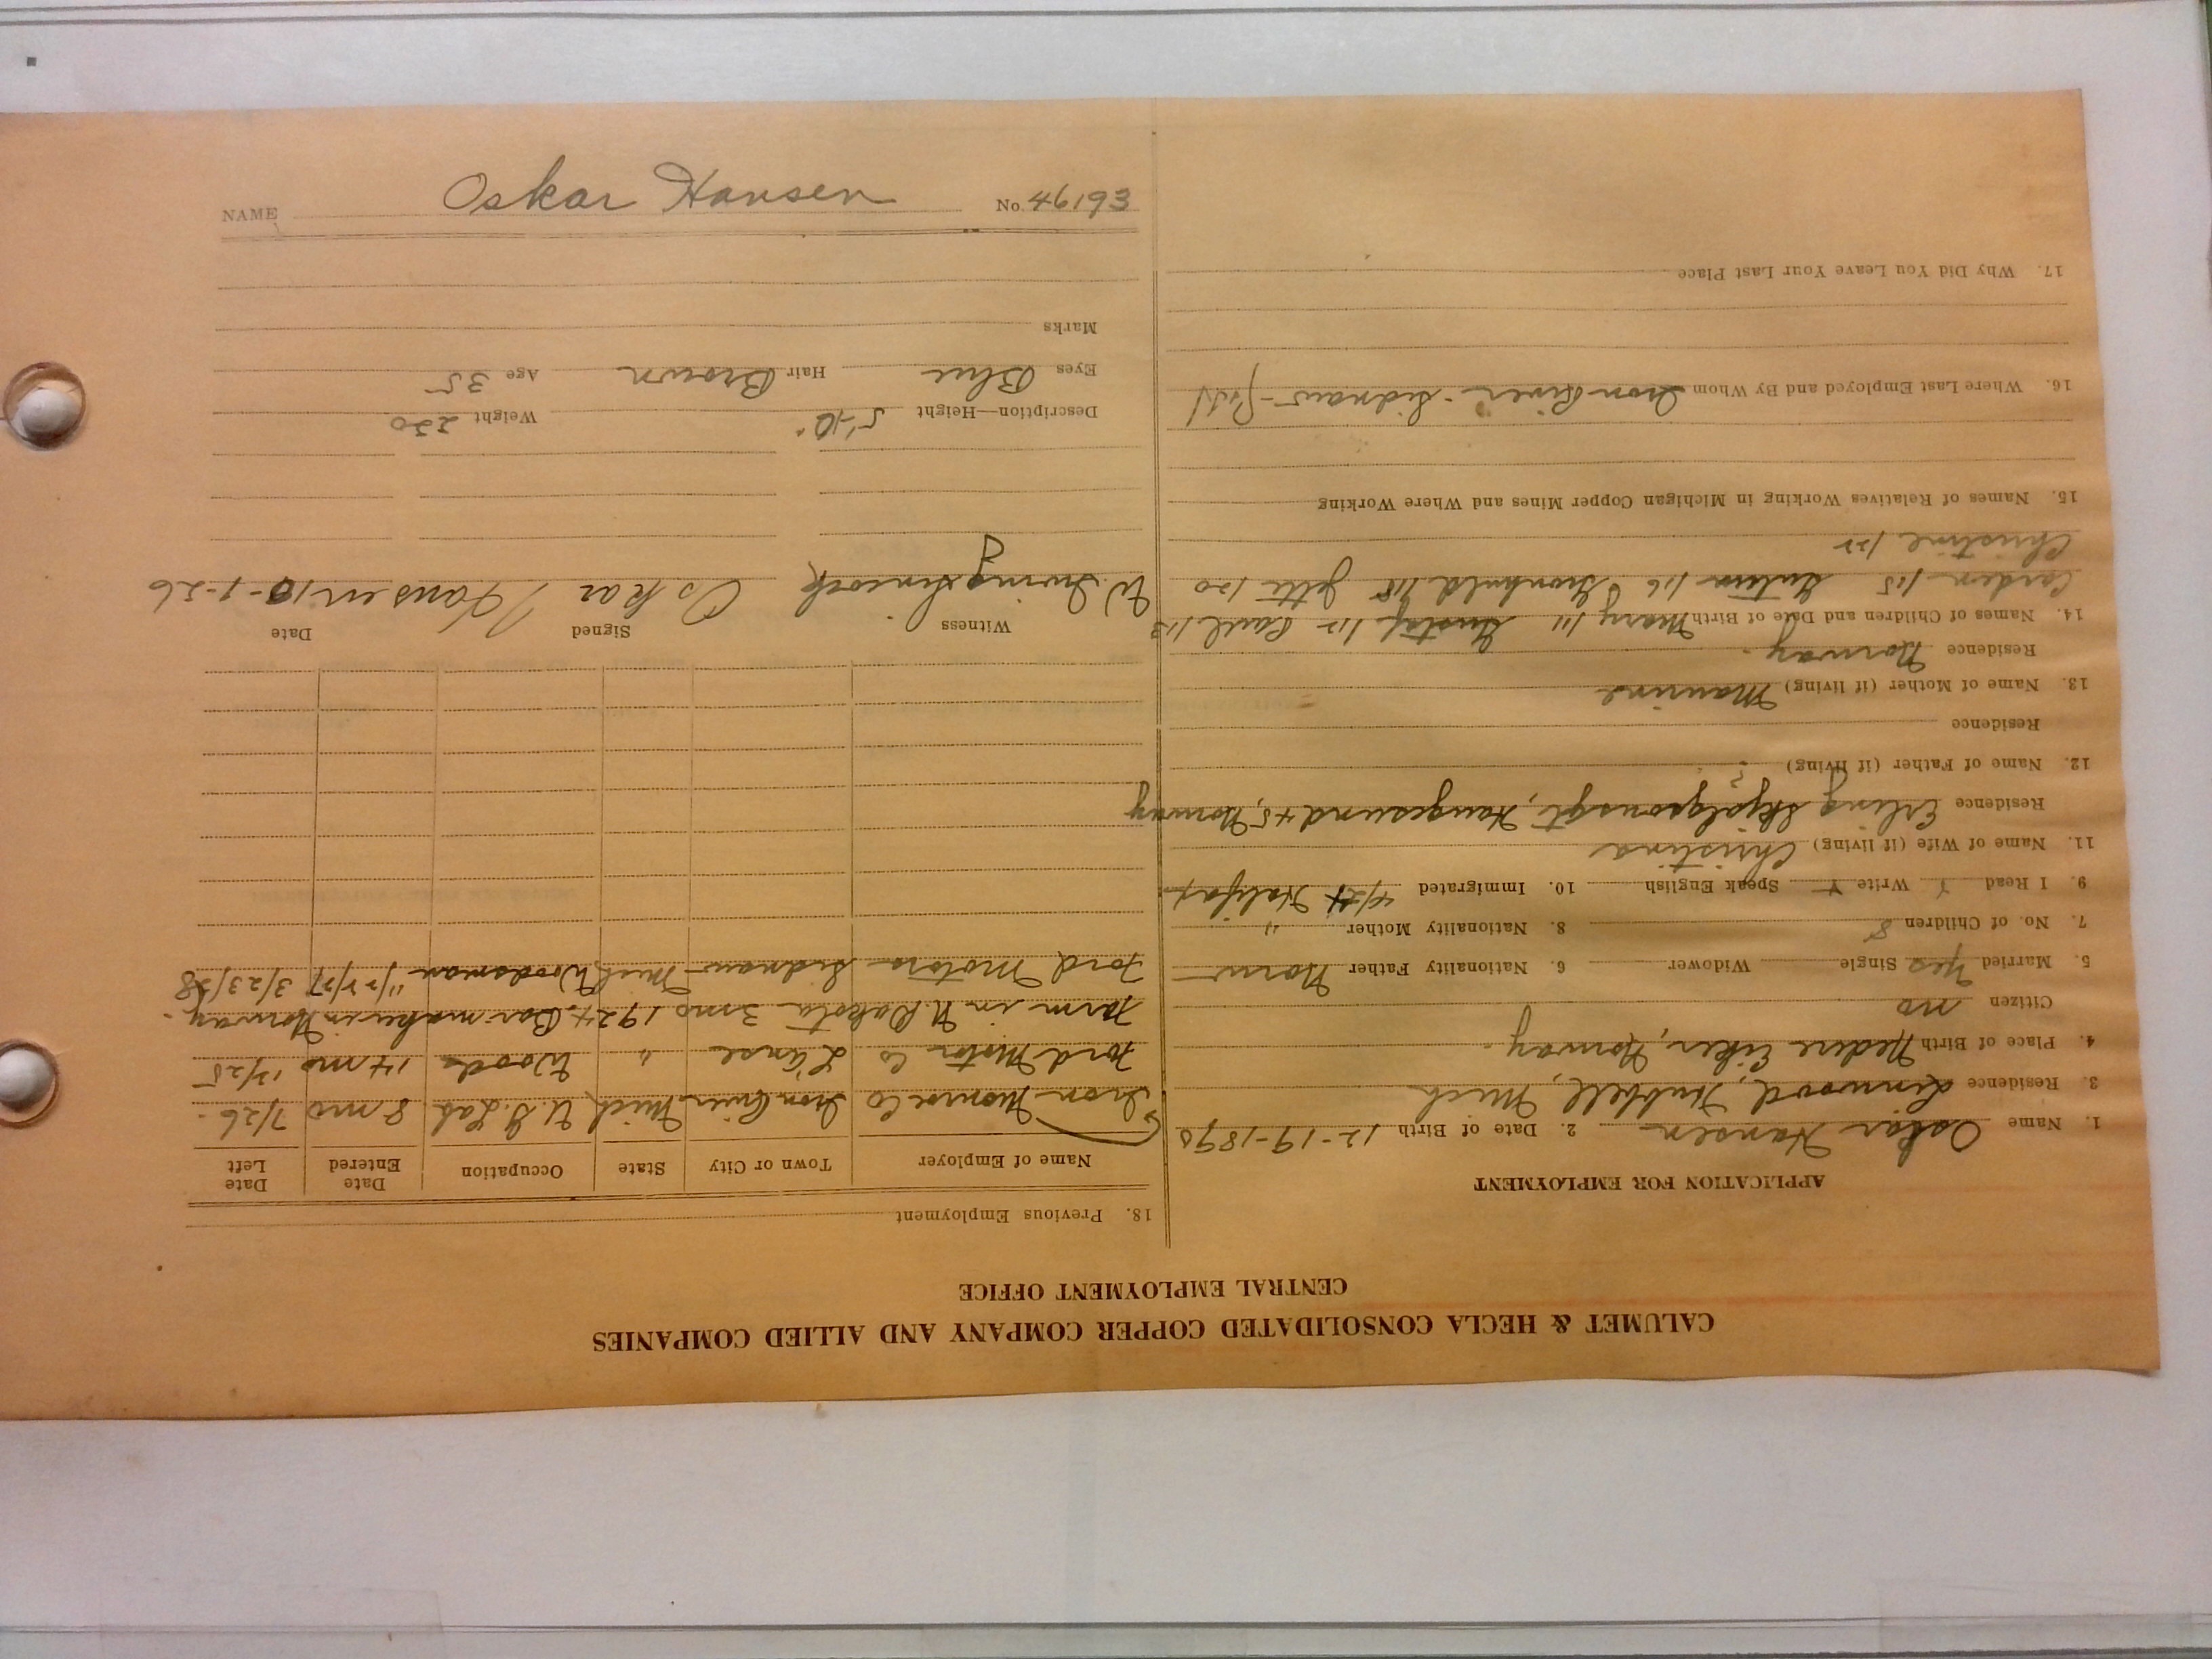 NAME Oskar Hansen No. 46193
CALUMET & HECLA CONSOLIDATED COPPER COMPANY AND ALLIED COMPANIES
CENTRAL EMPLOYMENT OFFICE
APPLICATION FOR EMPLOYMENT
1. Name Oskar Hansen 2. Date of Birth 12-19-1890
3. Residence Linwood, Hubbell, Mich
4. Place of Birth Nedre Eiker, Norway.
Citizen no
5. Married Yes Single Widower 6. Nationality Father Norw
7. No. of Children 8 8. Nationality Mother "
9. I Read Y Write Y Speak English 10. Immigrated 4/24 Halifax.
11. Name of Wife (if living) Christina
Residence Erling Haugesund, Norway
12. Name of Father (if living)
Residence
13. Name of Mother (if living) Maurine
Residence Norway.
14. Names of Children and Date of Birth Mary 111 Gustaf 112 Paul 113
115 116 118 120
Christine 122
15. Names of Relatives Working in Michigan Copper Mines and Where Working
16. Where Last Employed and By Whom Iron River - Sidnaw - Ford
17. Why Did You Leave Your Last Place
18. Previous Employment
Name of Employer Town or City State Occupation Date Entered Date Left
Iron Monroe Co Iron River Mich U.G. Lab 8 mo 7/26.
Ford Motor Co L'Anse " Woods 14 mo 12/25
Farm in N. Dakota 3 mo 1924. in Norway.
Ford Motors Sidnaw Mich Woodsman 11/22/27 3/23/28
Witness Signed Date
W. Irving Oskar Hansen 10-1-26
Description—Height 5'-10" Weight 230
Eyes Blue Hair Brown Age 35
Marks